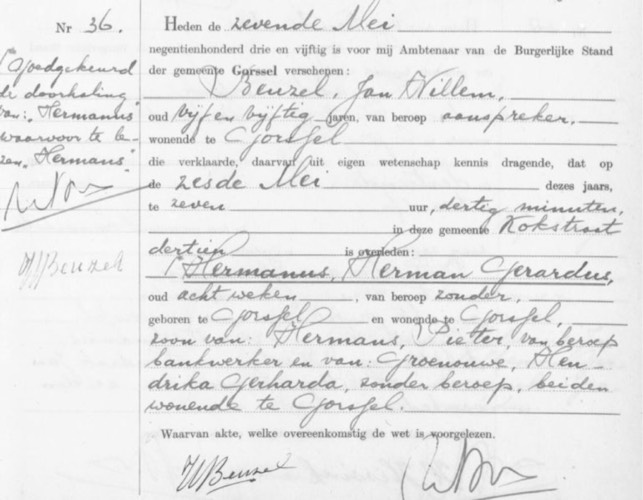 Nr 36.
Goedgekeurd
de doorhaling
van: "Hermanus"
waarvoor te le-
zen "Hermans"
JWBeuzel
Heden de zevende Mei
negentienhonderd drie en vijftig is voor mij Ambtenaar van de Burgerlijke Stand
der gemeente Gorssel verschenen:
Beuzel, Jan Willem,
oud vijf en vijftig jaren, van beroep aanspreker,
wonende te Gorssel
die verklaarde, daarvan uit eigen wetenschap kennis dragende, dat op
de zesde Mei dezes jaars,
te zeven uur, dertig minuten,
in deze gemeente Kokstraat
dertien is overleden:
Hermanus, Herman Gerardus,
oud acht weken, van beroep zonder,
geboren te Gorssel en wonende te Gorssel,
zoon van: Hermans, Pieter, van beroep
bankwerker en van: Groenouwe, Hen-
drika Gerharda, zonder beroep, beiden
wonende te Gorssel.
Waarvan akte, welke overeenkomstig de wet is voorgelezen.
JWBeuzel